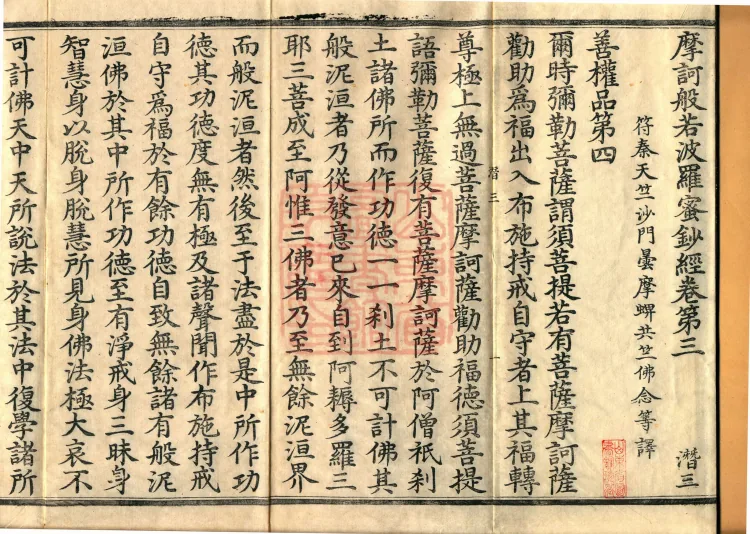 摩訶般若波羅蜜鈔經卷第三 潛三
符秦天竺沙門曇摩蜱共竺佛念等譯
善權品第四
爾時彌勒菩薩謂須菩提若有菩薩摩訶薩
勸助為福出入布施持戒自守者上其福轉
潛三
尊極上無過菩薩摩訶薩勸助福德須菩提
語彌勒菩薩復有菩薩摩訶薩於阿僧祇剎
土諸佛所而作功德一一剎土不可計佛其
般泥洹者乃從發意已來自到阿耨多羅三
耶三菩成至阿惟三佛者乃至無餘泥洹界
而般泥洹者然後至于法盡於是中所作功
德其功德度無有極及諸聲聞作布施持戒
自守為福於有餘功德自致無餘諸有般泥
洹佛於其中所作功德至有淨戒身三昧身
智慧身以脫身脫慧所見身佛法極大哀不
可計佛天中天所說法於其法中復學諸所